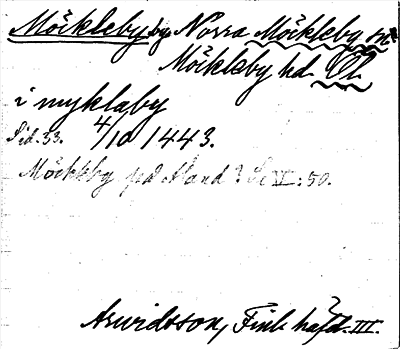 Möckleby by Norra Möckleby sn
Möckleby hd Öl
i myklaby
Sid. 33. 4/10 1443.
Möckleby på Åland? Se VI: 50.
Arwidsson, Finl. häfd. III.